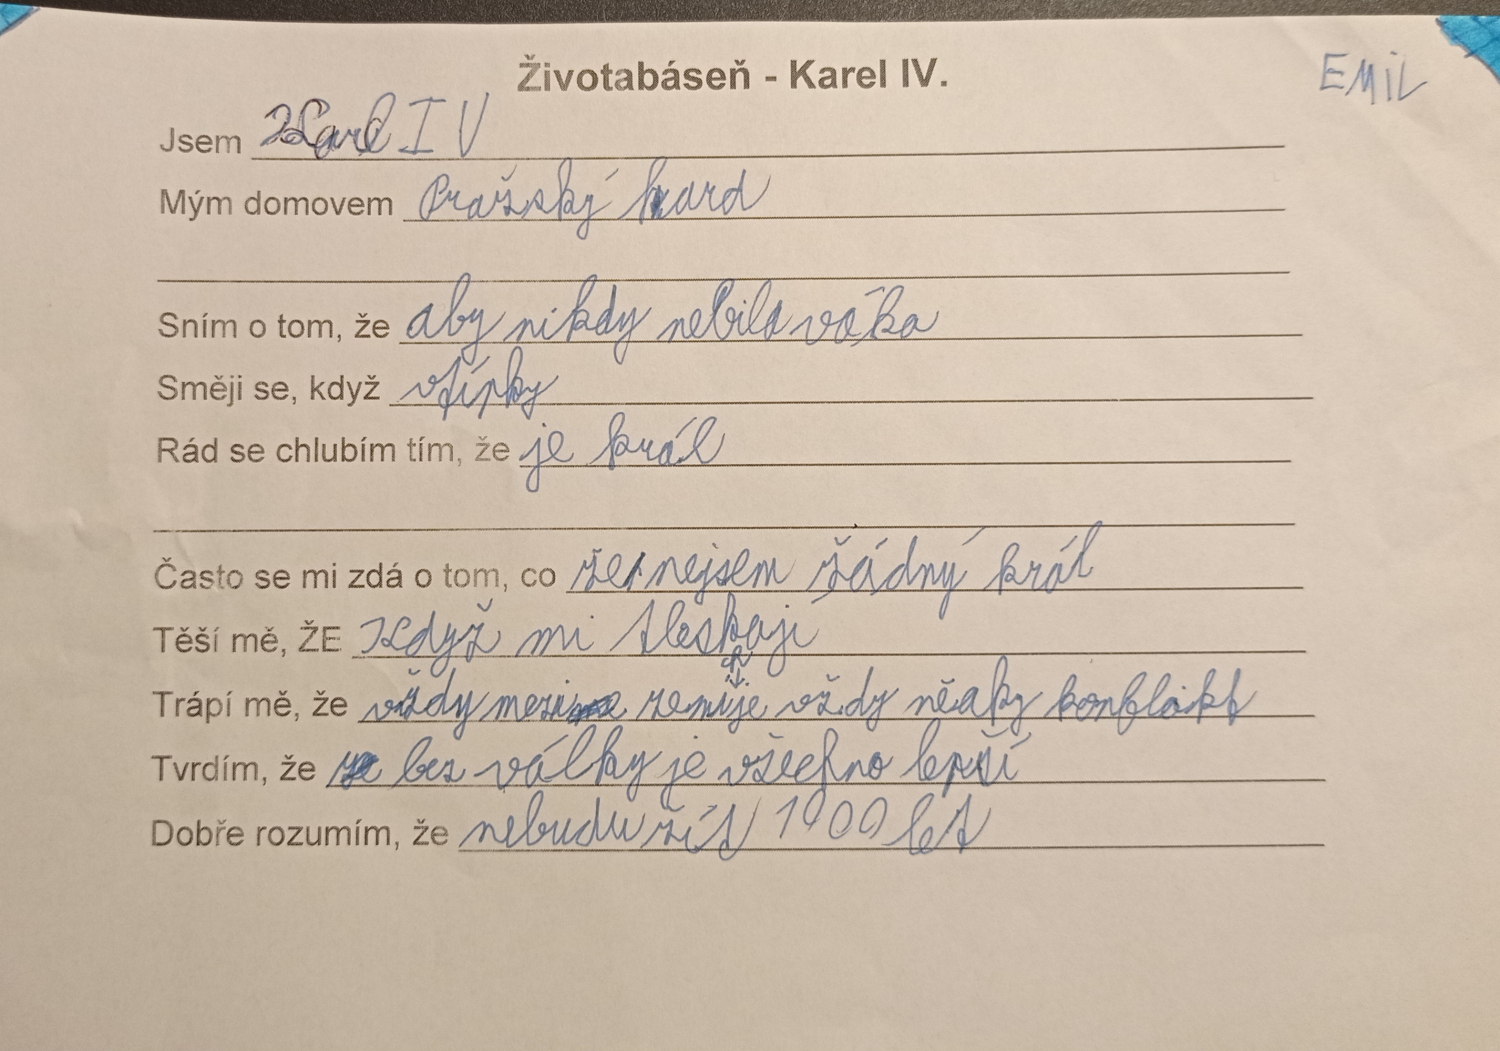 Životabáseň - Karel IV.
EMIL
Jsem Karel IV
Mým domovem Pražský hard
Sním o tom, že aby nikdy nebila váka
Směji se, když vtípky
Rád se chlubím tím, že je král
Často se mi zdá o tom, co že nejsem žádný král
Těší mě, ŽE Když mi tleskají
Trápí mě, že vždy mezi zemije vždy něaky konflikt
Tvrdím, že bez války je všechno lepší
Dobře rozumím, že nebudu žít 1900 let